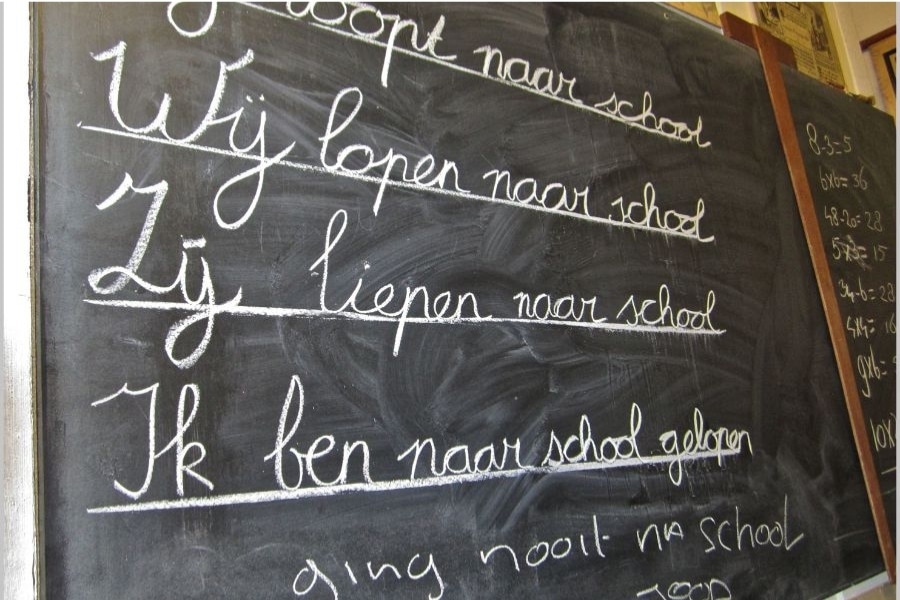 loopt naar school
Wij lopen naar school
Zij liepen naar school
Ik ben naar school gelopen
ging nooit na school
JOOP
8-3=5
6x6=36
48-20=28
= 15
34-6=28
4x4= 16
9x6=
10x